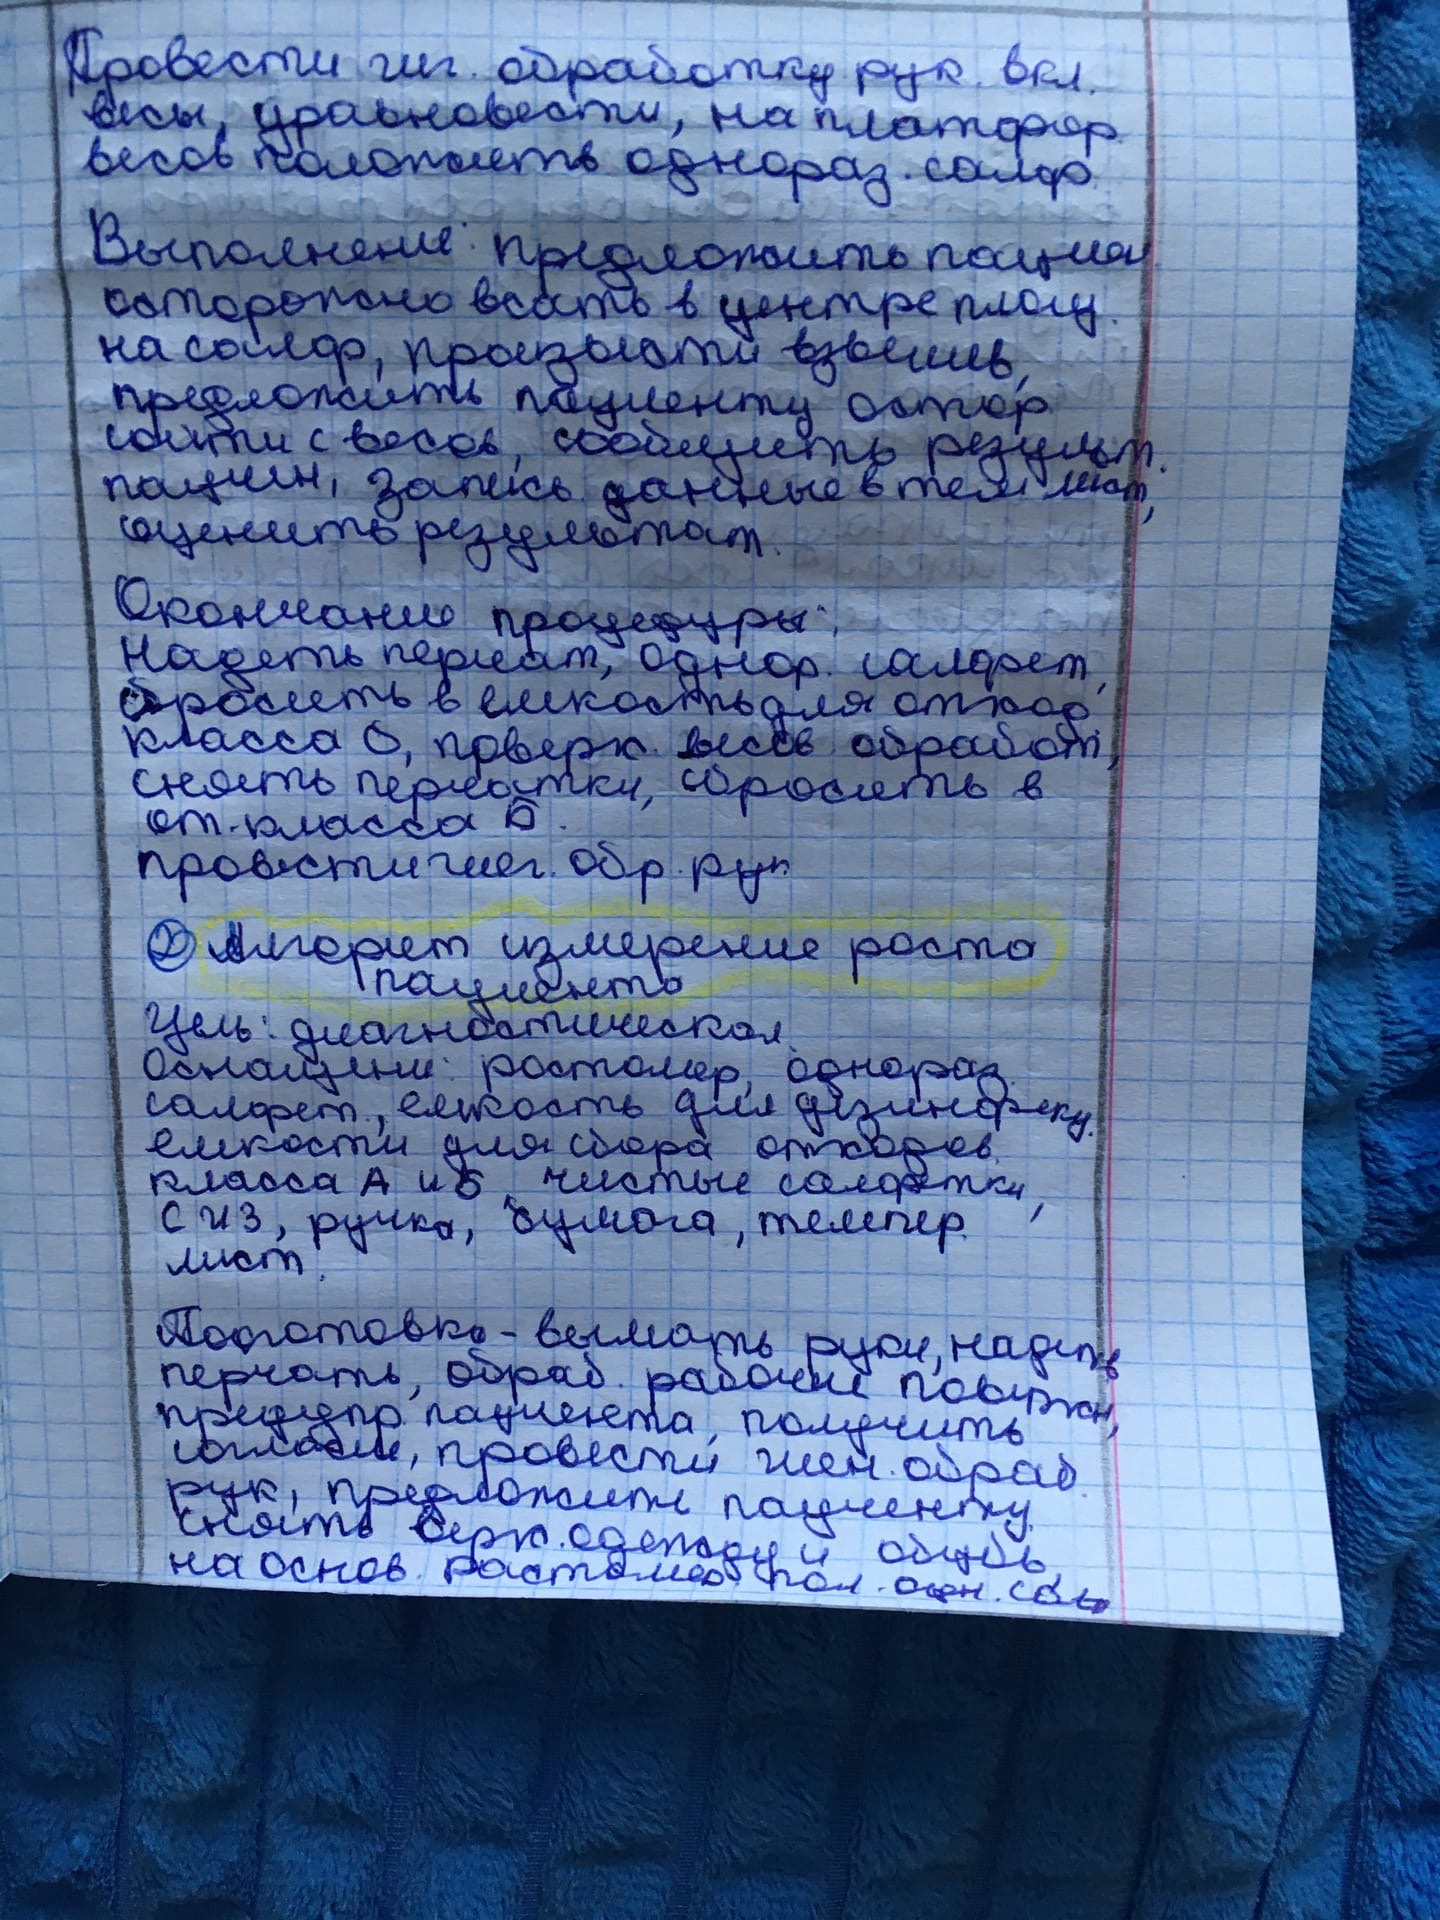 Провести гиг. обработку рук. вкл.
весы, уравновести, на платфор.
весов положить однораз. салф.
Выполнение: предложить пациен
осторожно всать в центре площ.
на салф, произвести взвешив,
предложить пациенту остор
сойти с весов, сообщить результ.
пациен, запись данные в тем лист,
оценить результат.
Окончание процедуры:
Надеть перчат, однор. салфет,
сбросить в емкость для отход
класса Б, поверх. весов обработ,
снять перчатки, сбросить в
от. класса Б.
провести гиг. обр. рук.
2 Алгорит измерение роста
пациента
Цель: диагностическая.
Оснащени: ростомер, однораз.
салфет., емкость для дезинфекц.
емкости для сбора отходов
класса А и Б, чистые салфетки,
СИЗ, ручка, бумага, темпер.
лист.
Подготовка - вымать руки, надеть
перчать, обраб. рабочие поверхн,
предупр пациента, получить
согласие, провести обраб.
рук, предложить пациенту
снять верх. одежду и обувь,
на основ. растомера пол.